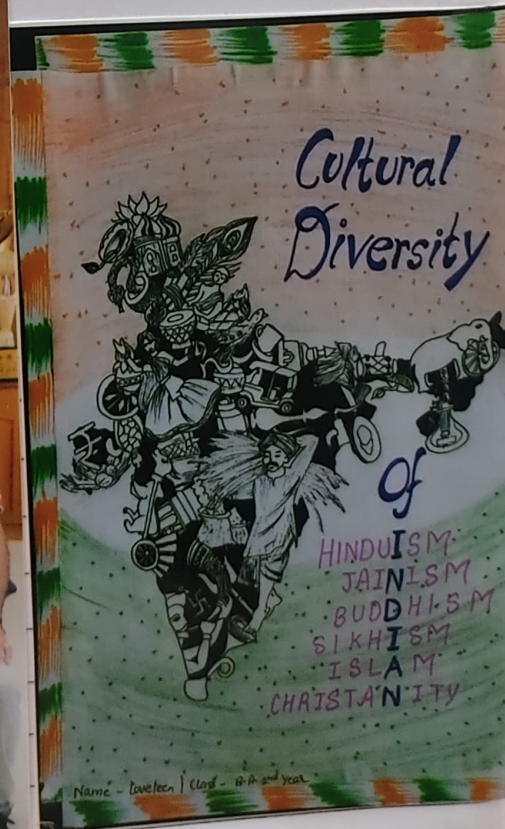 Cultural
Diversity
Of
HINDUISM
JAINISM
BUDDHISM
SIKHISM
ISLAM
CHRISTANITY
Name - Loveleen | Class - B.A 2nd Year